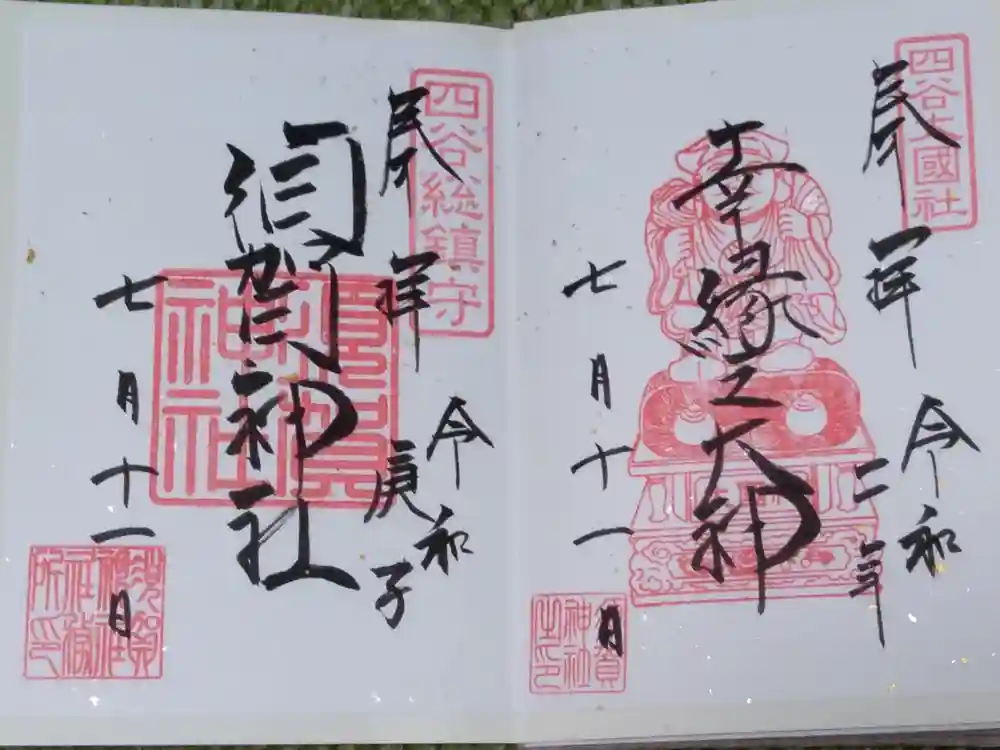 四谷大國社
奉拝
令和
二年
幸縁之大神
七月十一日
須賀
神社
之印
四谷総鎮守
奉拝
令和
庚子
須賀神社
須賀
神社
七月十一日
須賀
神社
所印